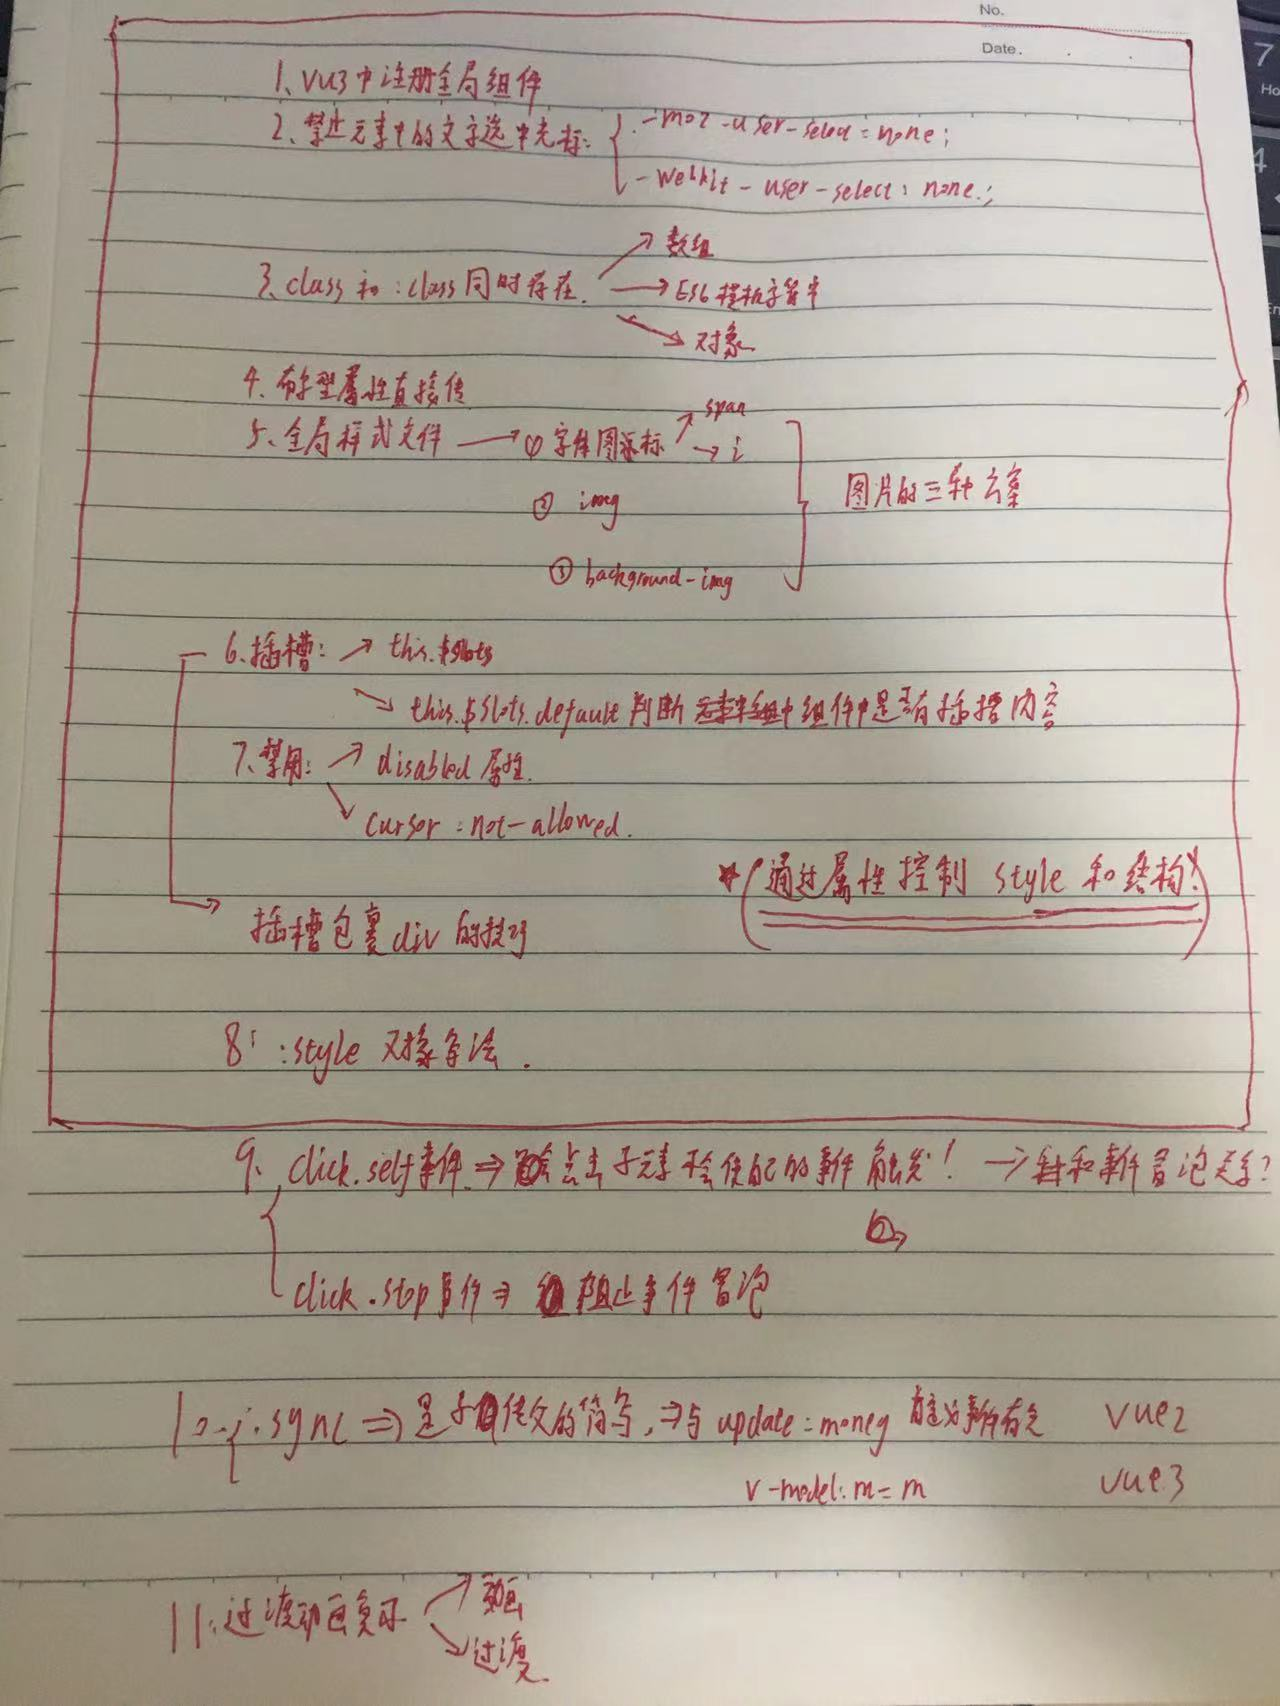 No.
Date.
7
Ho
4
1、vue3中注册全局组件
2、禁止元素中的文字选中光标: -moz-user-select=none;
-Webkit-user-select: none;
3、class和:class同时存在. 数组
ES6模板字符串
对象
4、布尔型属性直接传
5、全局样式文件 ① 字体图标 span
i
② img
图片的三种方案
③ background-img
6、插槽: this.$slots
this.$slots.default判断 组件中是否有插槽内容
7、禁用: disabled 属性.
cursor:not-allowed.
(通过属性控制 style 和结构!)
插槽包裹div的技巧
8、:style 对象写法.
9、click.self事件 ⇒ 点击子元素不会使自己的事件触发! → 和事件冒泡关系?
click.stop事件 ⇒ 阻止事件冒泡
10、.sync ⇒ 是子传父的简写, ⇒与 update:money 自定义事件有关 vue2
v-model:m=m vue3
11、过渡动画 动画
过渡